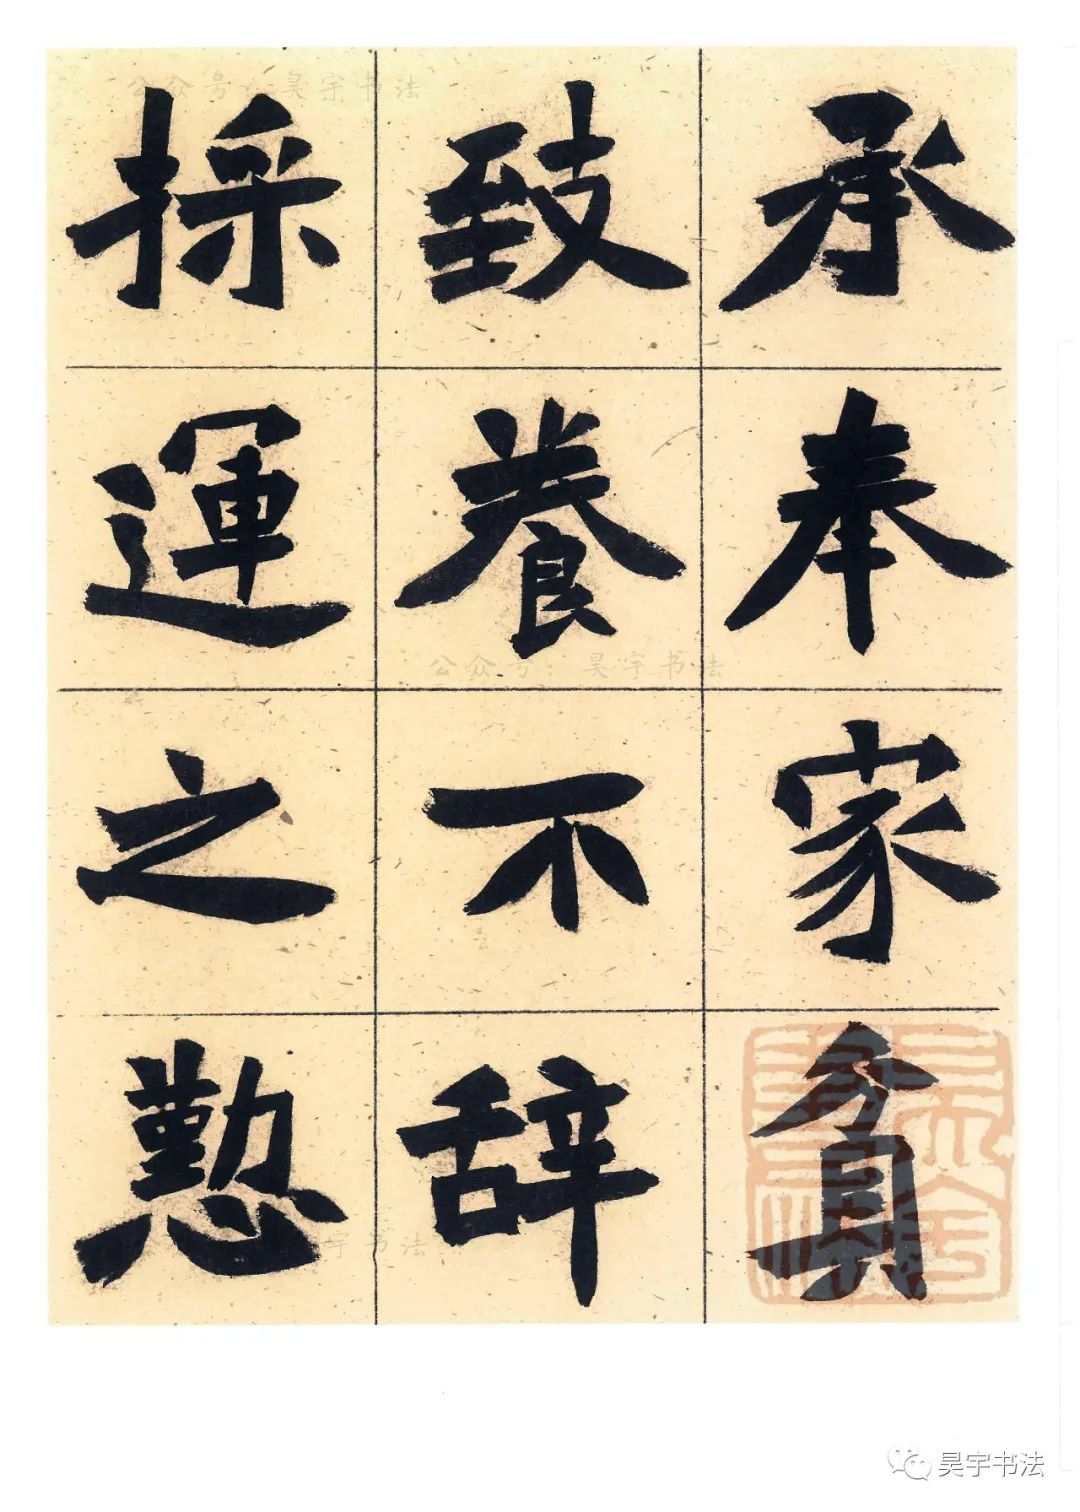 承奉家貧
致養不辞
採運之懃
公众号：昊宇书法
公众号：昊宇书法
宇书法
昊宇书法